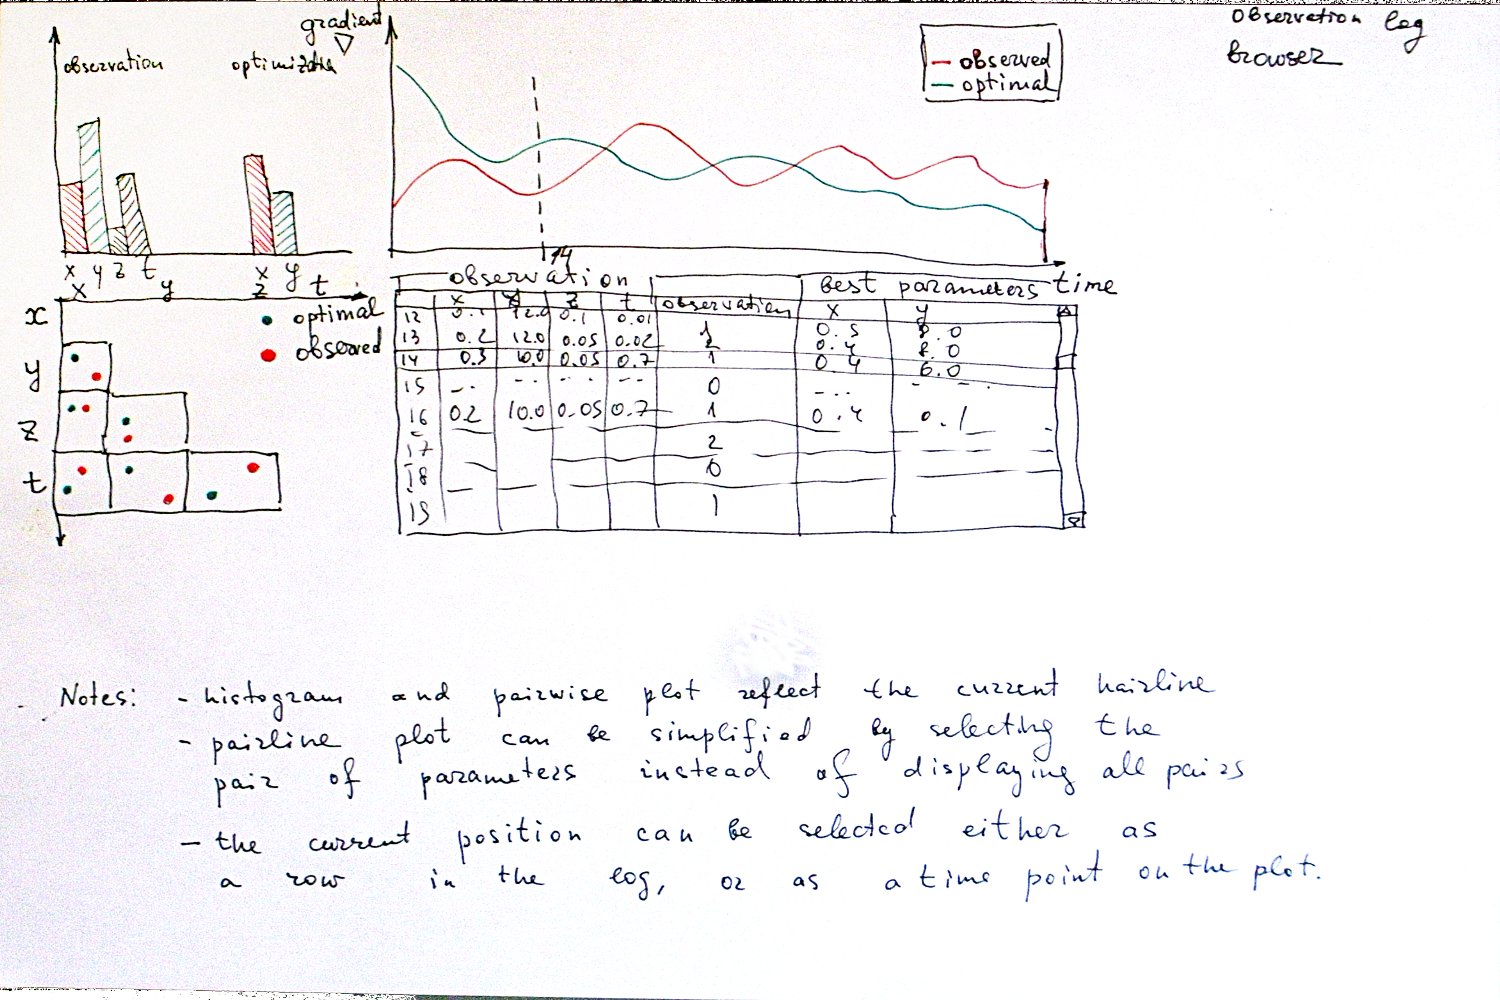 observation log
browser
gradient
observation
observed
optimal
x y z t
x y
14
time
x y z t
optimal
observed
x
y
z
t
observation
best parameters
x z t observation x y
12 0.1 12.0 0.1 0.01
13 0.2 12.0 0.05 0.02 2 0.4 8.0
14 0.3 10.0 0.05 0.7 1 0.4 6.0
15 -.. ... ... 0 -...
16 0.2 10.0 0.05 0.7 1 0.4 0.1
17 2
18 0
19 1
Notes: - histogram and pairwise plot reflect the current hairline
- pairline plot can be simplified by selecting the
pair of parameters instead of displaying all pairs
- the current position can be selected either as
a row in the log, or as a time point on the plot.